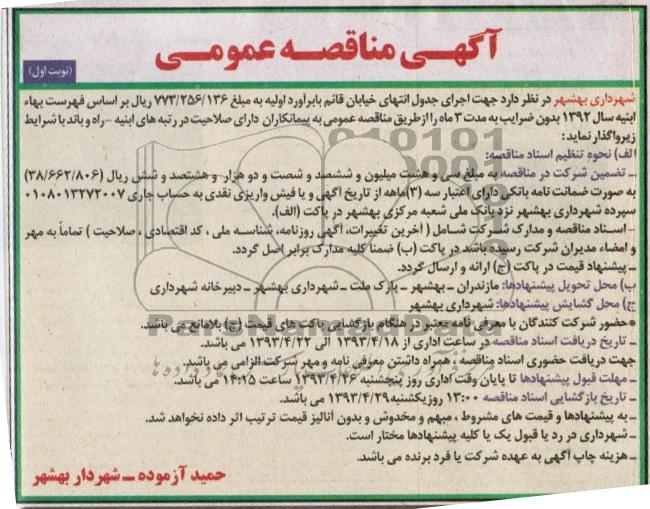 آگهـی مناقصـه عمومـی
(نوبت اول)
شهرداری بهشهر در نظر دارد جهت اجرای جدول انتهای خیابان قائم بابرآورد اولیه به مبلغ ۷۷۳/۲۵۶/۱۳۶ ریال بر اساس فهرست بهاء
ابنیه سال ۱۳۹۲ بدون ضرایب به مدت ۳ ماه را ازطریق مناقصه عمومی به پیمانکاران دارای صلاحیت در رتبه های ابنیه -راه و باند با شرایط
زیرواگذار نماید:
الف) نحوه تنظیم اسناد مناقصه:
ـ تضمین شرکت در مناقصه به مبلغ سی و هشت میلیون و ششصد و شصت و دو هزار و هشتصد و شش ریال (۳۸/۶۶۲/۸۰۶)
به صورت ضمانت نامه بانکی دارای اعتبار سه (۳)ماهه از تاریخ آگهی و یا فیش واریزی نقدی به حساب جاری ۰۱۰۸۰۱۳۲۷۲۰۰۷
سپرده شهرداری بهشهر نزد بانک ملی شعبه مرکزی بهشهر در پاکت (الف).
- اسـناد مناقصه و مدارک شـرکت شـامل ( آخرین تغییرات، آگهی روزنامه، شناسـه ملی ، کد اقتصادی ، صلاحیت ) تماماً به مهر
و امضاء مدیران شرکت رسیده باشد در پاکت (ب) ضمنا کلیه مدارک برابر اصل گردد.
ـ پیشنهاد قیمت در پاکت (ج) ارائه و ارسال گردد.
ب) محل تحویل پیشنهادها: مازندران ـ بهشهر ـ پارک ملت ـ شهرداری بهشهر ـ دبیرخانه شهرداری
ج) محل گشایش پیشنهادها: شهرداری بهشهر
●حضور شرکت کنندگان با معرفی نامه معتبر در هنگام بازگشایی پاکت های قیمت (ج) بلامانع می باشد.
ـ تاریخ دریافت اسناد مناقصه در ساعت اداری از ۱۳۹۳/۴/۱۸ الی ۱۳۹۳/۴/۲۲ می باشد.
جهت دریافت حضوری اسناد مناقصه ، همراه داشتن معرفی نامه و مهر شرکت الزامی می باشد.
ـ مهلت قبول پیشنهادها تا پایان وقت اداری روز پنجشنبه ۱۳۹۳/۴/۲۶ ساعت ۱۴:۱۵ می باشد.
ـ تاریخ بازگشایی اسناد مناقصه ۱۳:۰۰ روز یکشنبه ۱۳۹۳/۴/۲۹ می باشد.
ـ به پیشنهادها و قیمت های مشروط ، مبهم و مخدوش و بدون آنالیز قیمت ترتیب اثر داده نخواهد شد.
ـ شهرداری در رد یا قبول یک یا کلیه پیشنهادها مختار است.
ـ هزینه چاپ آگهی به عهده شرکت یا فرد برنده می باشد.
حمید آزموده ـ شهردار بهشهر